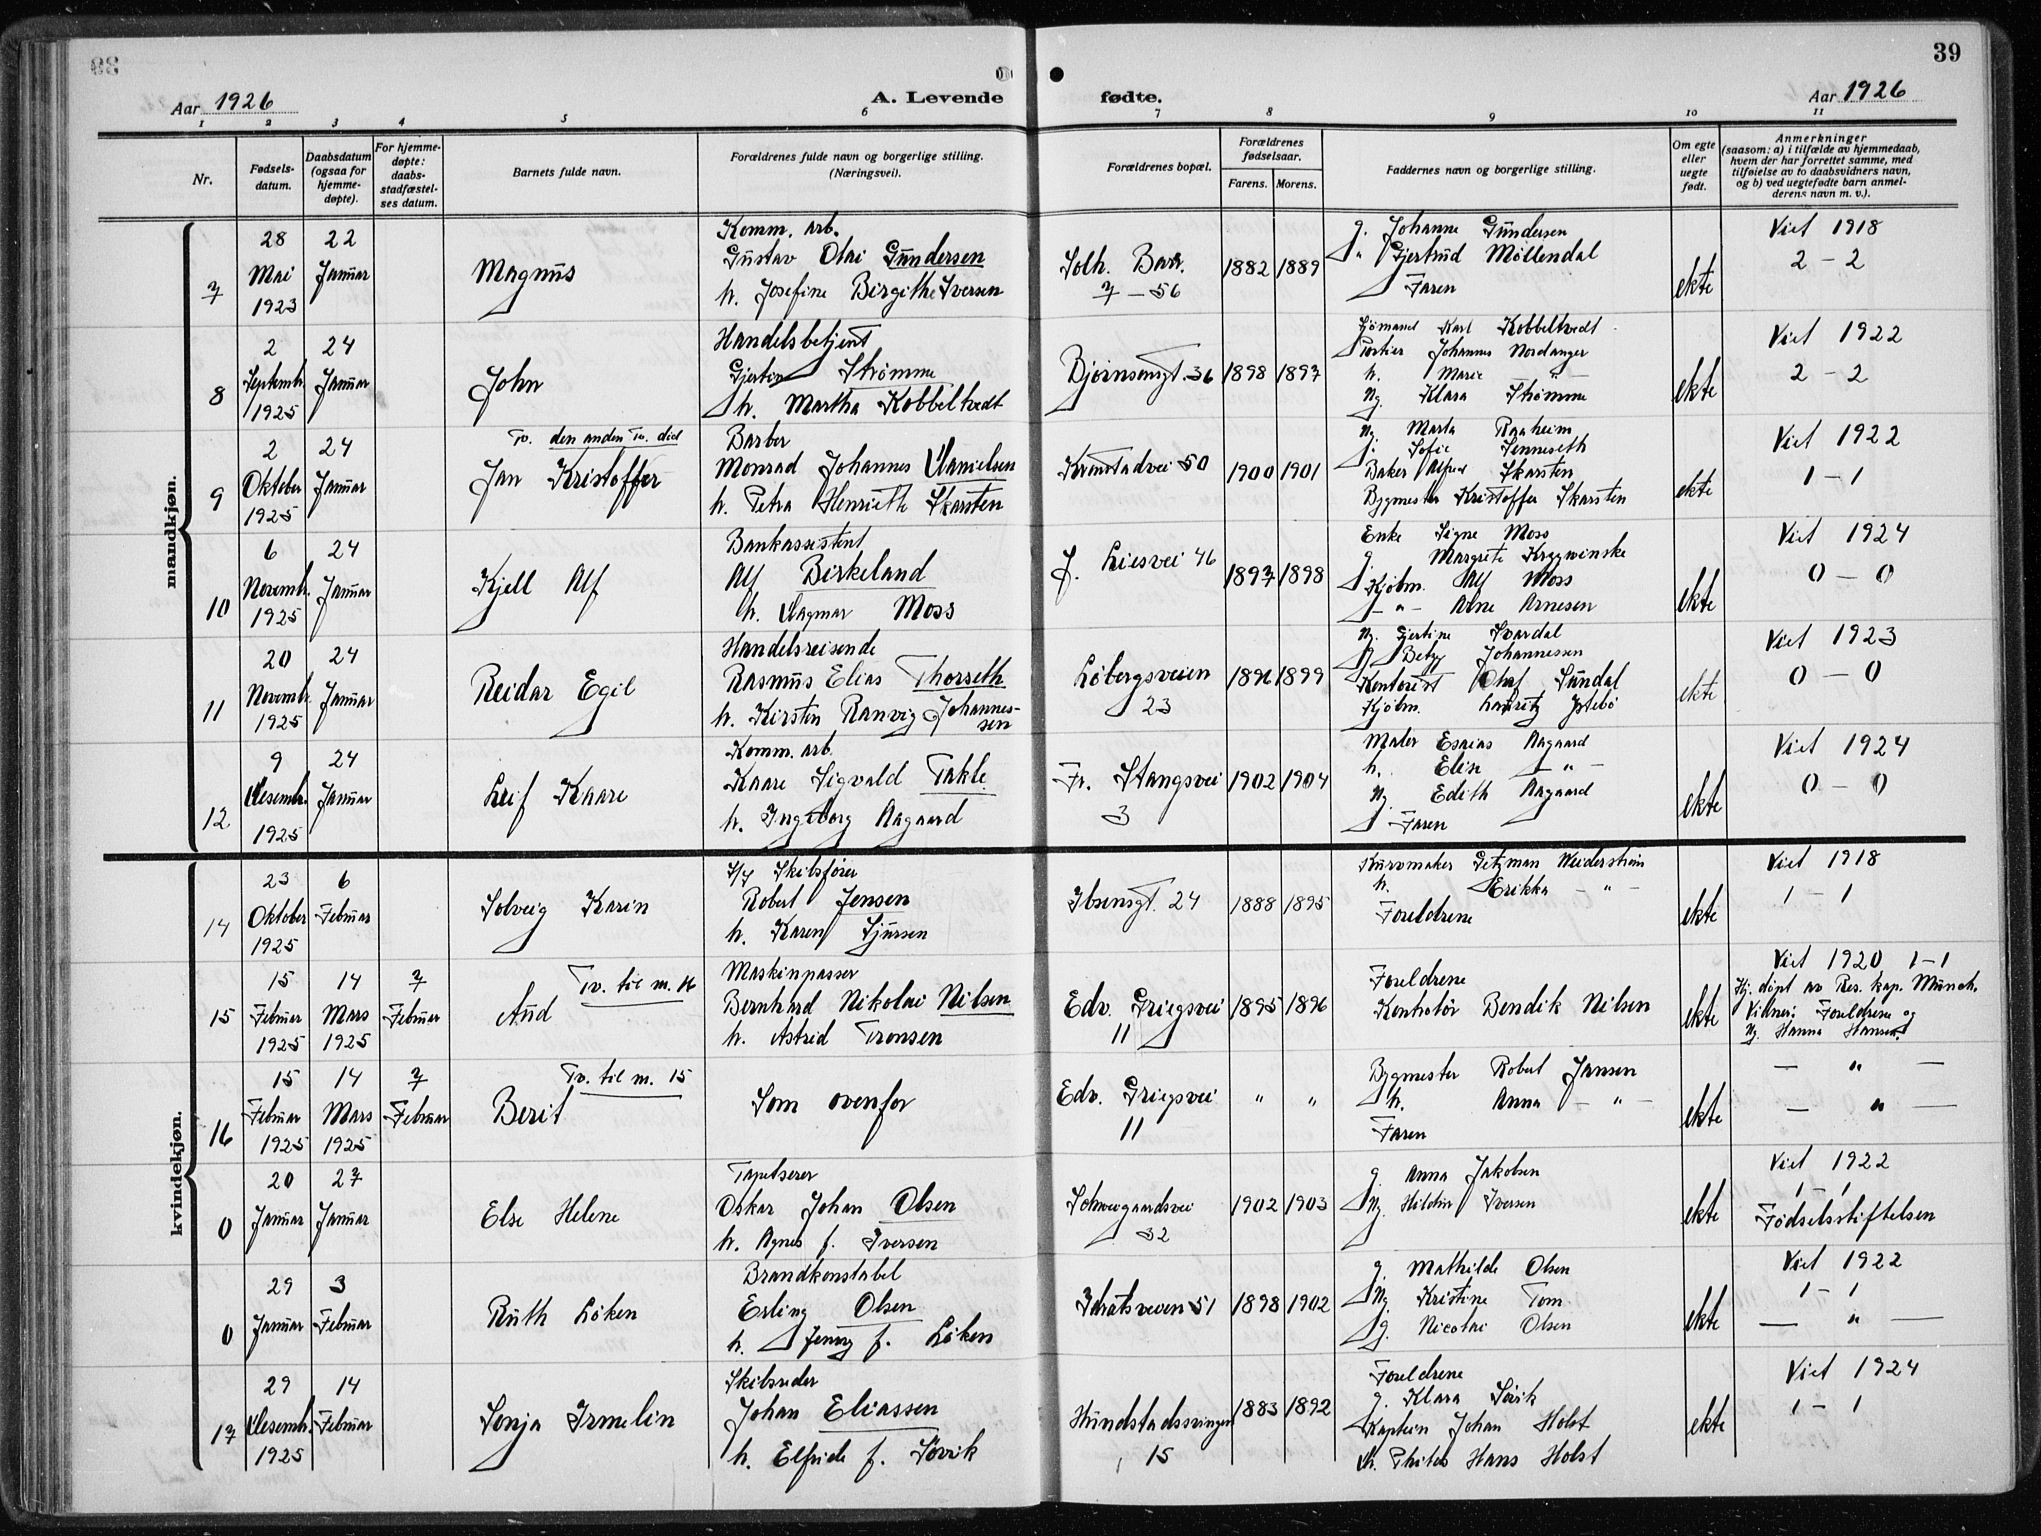 39
Aar 1926
A. Levende fødte.
Aar 1926
1 2 3 4 5 6 7 8 9 10 11
Nr.
Fødsels-
datum.
Daabsdatum
(ogsaa for
hjemme-
døpte).
For hjemme-
døpte:
daabs-
stadfæstel-
ses datum.
Barnets fulde navn.
Forældrenes fulde navn og borgerlige stilling.
(Næringsvei).
Forældrenes bopæl.
Forældrenes
fødselsaar.
Farens. Morens.
Faddernes navn og borgerlige stilling.
Om egte
eller
uegte
født.
Anmerkninger
(saasom: a) i tilfælde av hjemmedaab,
hvem der har forrettet samme, med
tilføielse av to daabsvidners navn,
og b) ved uegtefødte barn anmel-
derens navn m. v.).
mandkjøn.
7
28
Mai
1923
22
Januar
Magnus
Komm. arb.
Gustav Olai Gundersen
h. Josefine Birgithe Iversen
Solh. Barr.
7 - 56
1882 1889
g. Johanne Gundersen
" Gjertrud Møllendal
Faren
ekte
Viet 1918
2 - 2
8
2
Septemb.
1925
24
Januar
John
Handelsbetjent
Gjertin Strømme
h. Martha Kobbeltvedt
Bjørnsonsgt. 36
1898 1897
Sjømand Karl Kobbeltvedt
Portier Johannes Nordanger
h. Marie - " -
Ug. Klara Strømme
ekte
Viet 1922
2 - 2
9
2
Oktober
1925
24
Januar
Tv. den anden Tv. död
Jan Kristoffer
Barber
Monrad Johannes Danielsen
h. Petra Henriette Skarsten
Kronstadvei 50
1900 1901
Ug. Marta Raaheim
g. Sofie Senneseth
Baker Alfred Skarsten
Bygmester Kristoffer Skarsten
ekte
Viet 1922
1 - 1
10
6
Novemb.
1925
24
Januar
Kjell Alf
Bankassistent
Alf Birkeland
h. Dagmar Moss
J. Liesvei 46
1897 1898
Enke Signe Moss
g. Margrete
Kjøbm. Alf Moss
- " - Arne Arnesen
ekte
Viet 1924
0 - 0
11
20
Novemb.
1925
24
Januar
Reidar Egil
Handelsreisende
Rasmus Elias Thorseth
h. Kirsten Ranvig Johannes-
sen
Løbergsveien
23
1896 1899
Ug. Gjertine Svardal
g. Betzy Johannessen
Kontorist Olaf Sundal
Kjøbm. Lauritz Ystebø
ekte
Viet 1923
0 - 0
12
9
Desemb.
1925
24
Januar
Leif Kaare
Komm. arb.
Kaare Sigvald Takle
h. Ingeborg Aagaard
Fr. Stangsvei
3
1902 1904
Maler Esaias Aagaard
h. Elin - " -
Ug. Edith Aagaard
Faren
ekte
Viet 1924
0 - 0
kvindekjøn.
14
23
Oktober
1925
6
Februar
Solveig Karin
Skibsfører
Robert Jensen
h. Karen Sjursen
Ibsensgt. 24
1888 1895
Kurvmaker Getzman
h. Erikka - " -
Foreldrene
ekte
Viet 1918
1 - 1
15
15
Februar
1925
14
Mars
1925
7
Februar
Tv. til m. 16
Aud
Maskinpasser
Bernhard Nikolai Nilsen
h. Astrid Tronsen
Edv. Griegsvei
11
1895 1896
Foreldrene
Kontrolør Bendik Nilsen
ekte
Viet 1920 1-1
Hj. döpt av Res. kap. Münch.
Vidner: Foreldrene og
Ug. Hanna Hansen
16
15
Februar
1925
14
Mars
1925
7
Februar
Tv. til m. 15
Berit
Som ovenfor
Edv. Griegsvei
11
" "
Bygmester Robert Jansen
h. Anna - " -
Faren
ekte
- " -
- " -
0
20
Januar
27
Januar
Else Helene
Tapetserer
Oskar Johan Olsen
h. Agnes f. Iversen
Schweigaardsvei
32
1902 1903
g. Anna Jakobsen
Ug. Hildur Iversen
ekte
Viet 1922
1 - 1
Fødselsstiftelsen
0
29
Januar
3
Februar
Ruth Løken
Brandkonstabel
Erling Olsen
h. Jenny f. Løken
Idrætsveien 51
1898 1902
g. Mathilde Olsen
Ug. Kristine Tom
g. Nicolai Olsen
ekte
Viet 1922
1 - 1
- " -
17
29
Desemb.
1925
14
Februar
Sonja Irmelin
Skibsreder
Johan Eliassen
h. Elfride f. Søvik
Hundstadssvingen
15
1883 1892
Foreldrene
g. Klara Søvik
Kaptein Johan Holst
Hans Holst
ekte
Viet 1924
1 - 1